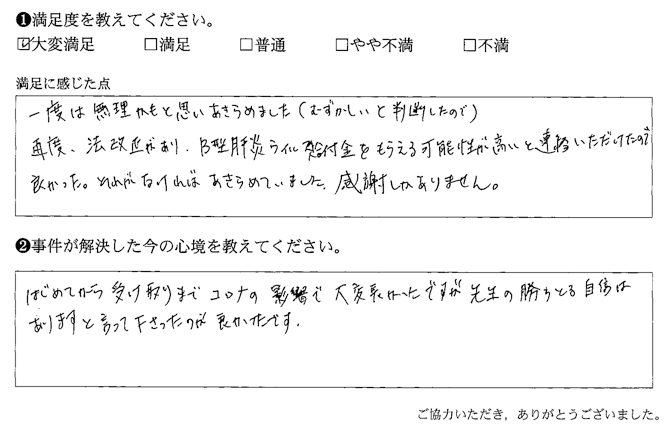 ❶満足度を教えてください。
☑大変満足 □満足 □普通 □やや不満 □不満
満足に感じた点
一度は無理かもと思いあきらめました(むずかしいと判断したので)
再度、法改正があり、B型肝炎ウイルス給付金をもらえる可能性が高いと連絡いただけたので
良かった。それがなければあきらめていました、感謝しかありません。
❷事件が解決した今の心境を教えてください。
はじめてから受け取りまでコロナの影響で大変長かったですが先生の勝ちとる自信は
ありますと言って下さったのが良かったです。
ご協力いただき，ありがとうございました。